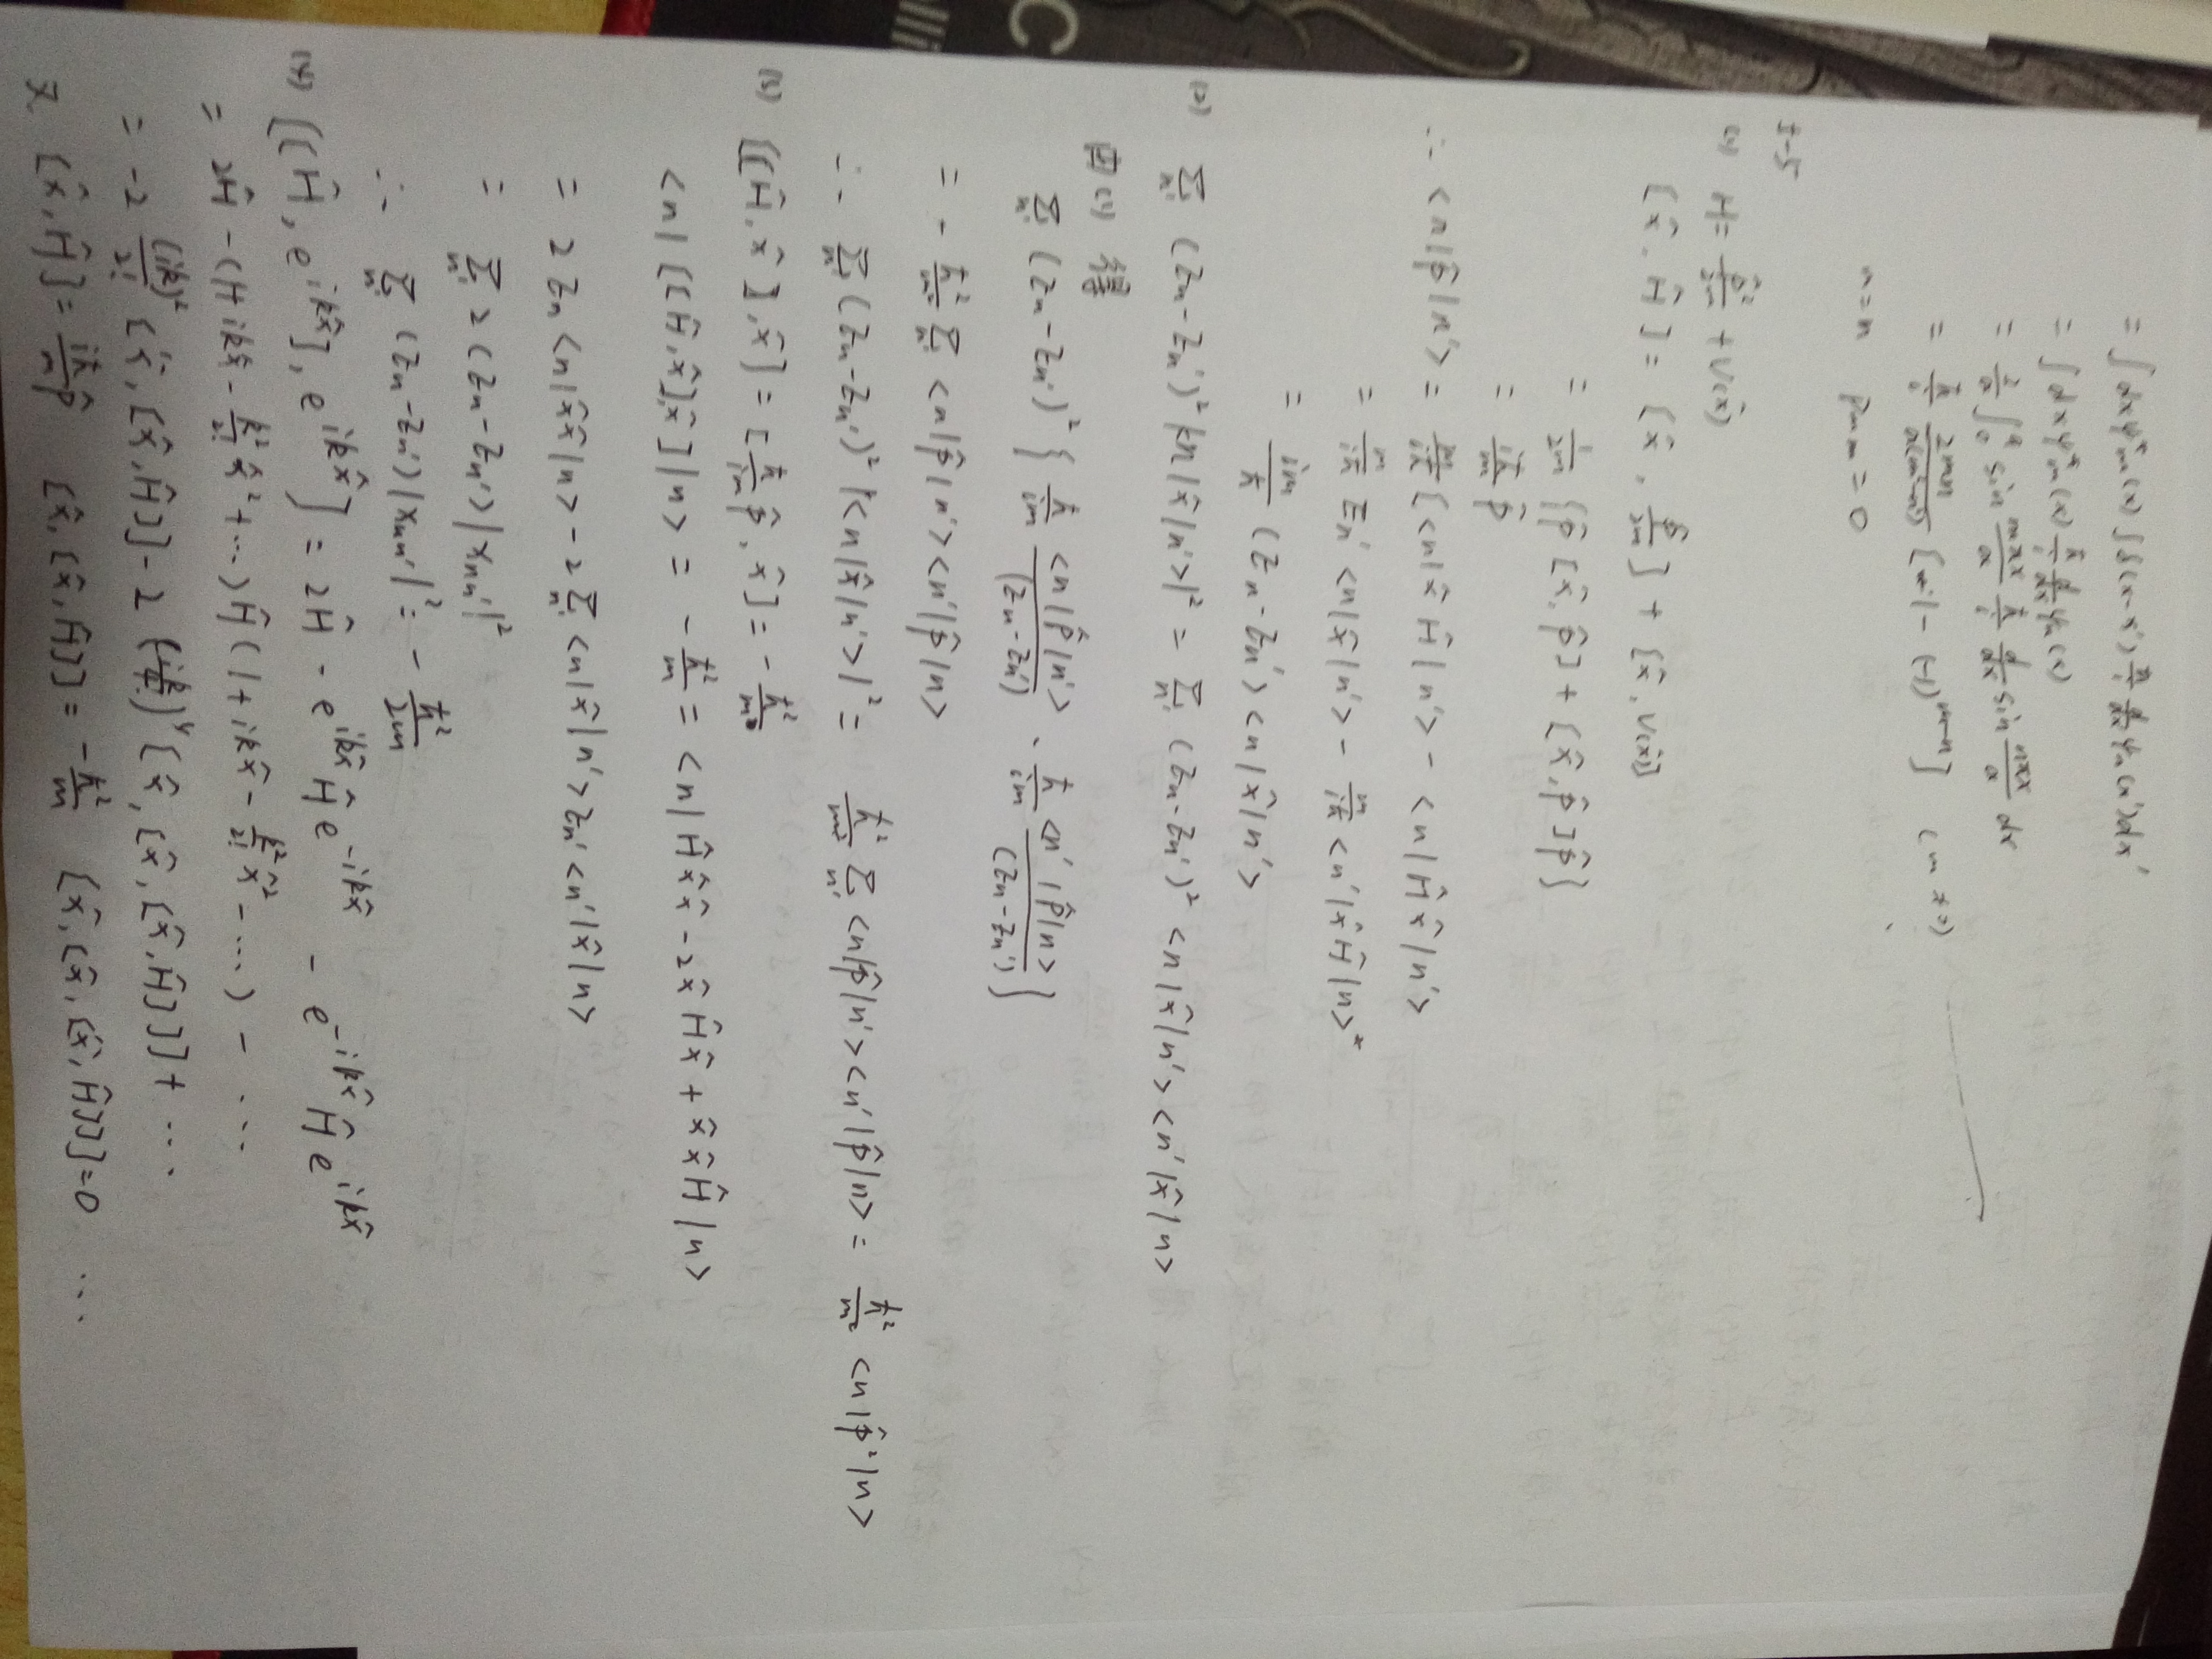 = ∫ dx ψ*m(x) ∫ δ(x-x') ħ/i d/dx' ψn(x') dx'
= ∫ dx ψ*m(x) ħ/i d/dx ψn(x)
= 2/a ∫₀^a sin mπx/a ħ/i d/dx sin nπx/a dx
m = n Pmm = 0
5-5
(1) H = p̂²/2m + V(x̂)
[x̂, Ĥ] = [x̂, p̂²/2m] + [x̂, V(x)]
= 1/2m {p̂[x̂,p̂] + [x̂,p̂]p̂}
= iħ/m p̂
∴ <n|p̂|n'> = m/iħ [<n|x̂Ĥ|n'> - <n|Ĥx̂|n'>
= m/iħ En' <n|x̂|n'> - m/iħ <n'|x̂Ĥ|n>*
= im/ħ (En-En') <n|x̂|n'>
(2) Σn' (En-En')² |<n|x̂|n'>|² = Σn' (En-En')² <n|x̂|n'><n'|x̂|n>
由(1)得
Σn' (En-En')² { ħ/im <n|p̂|n'>/(En-En') · ħ/im <n'|p̂|n>/(En-En') }
= - ħ²/m² Σn' <n|p̂|n'><n'|p̂|n>
∴ Σn' (En-En')² |<n|x̂|n'>|² = ħ²/m² Σn' <n|p̂|n'><n'|p̂|n> = ħ²/m² <n|p̂²|n>
(3) [[Ĥ,x̂],x̂] = [ħ/im p̂, x̂] = - ħ²/m
<n|[[Ĥ,x̂],x̂]|n> = - ħ²/m = <n|Ĥx̂x̂ - 2x̂Ĥx̂ + x̂x̂Ĥ|n>
= 2En <n|x̂x̂|n> - 2Σn' <n|x̂|n'> En' <n'|x̂|n>
= Σn' 2(En-En')|xnn'|²
∴ Σn' (En-En')|xnn'|² = - ħ²/2m
(4) [[Ĥ, e^{ikx̂}], e^{ikx̂}] = 2Ĥ - e^{ikx̂} Ĥ e^{-ikx̂} - e^{-ikx̂} Ĥ e^{ikx̂}
= 2Ĥ - (1+ikx̂ - k²/2! x̂² + ···) Ĥ (1+ikx̂ - k²/2! x̂² - ···) - ···
= -2 (ik)²/2! [x̂,[x̂,Ĥ]] - 2 (ik)⁴/4! [x̂,[x̂,[x̂,Ĥ]]] + ···
又 [x̂,Ĥ] = iħ/m p̂ [x̂,[x̂,Ĥ]] = - ħ²/m [x̂,[x̂,[x̂,Ĥ]]] = 0 ···